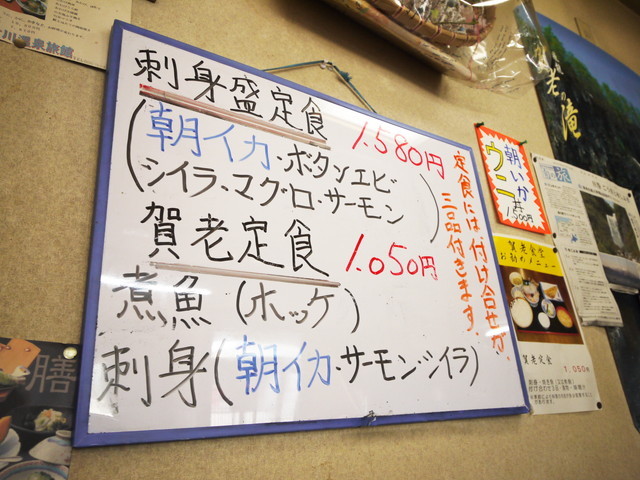 刺身盛定食 1.580円
(朝イカ・ボタンエビ
シイラ、マグロ・サーモン)
賀老定食 1.050円
煮魚(ホッケ)
刺身(朝イカ・サーモン・シイラ)
定食には、付け合せが、
三品付きます。
朝いか
ウニ丼
1,500円
老の滝
賀老食堂
お勧めメニュー
賀老定食
1,050円
川温泉旅館
膳